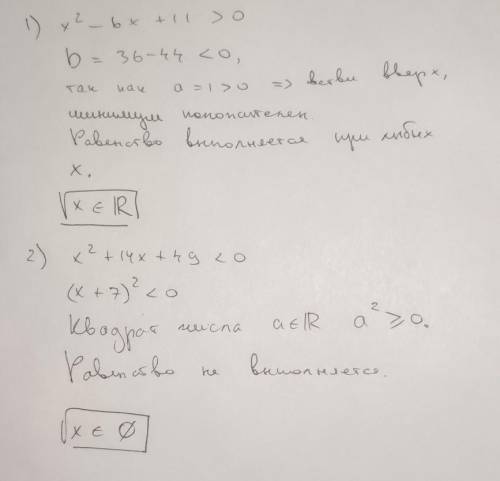 1) x² - 6x + 11 > 0
b = 36 - 44 < 0,
так как a = 1 > 0 => ветви вверх,
минимум положителен.
Равенство выполняется при любых
x.
x ∈ ℝ
2) x² + 14x + 49 < 0
(x + 7)² < 0
Квадрат числа a ∈ ℝ a² ⩾ 0.
Равенство не выполняется.
x ∈ ∅